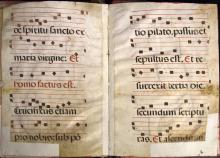 ce spiritu sancto ex
maria virgine: Et
homo factus est.
Crucifixus etiam
pro nobis: sub pō
tio pilato, passus: et
sepultus est. Et re
surrexit tertia die,
secundum scriptu
ras. Et ascendit